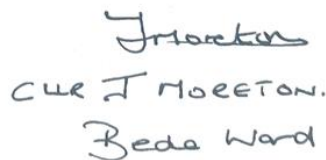 JMoreton
CLLR J MORETON.
Beda Ward